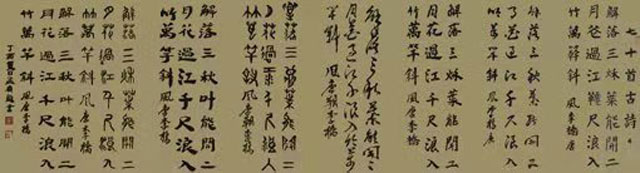 七十首古诗
解落三妹菜能開二
月芲過江難尺浪入
竹萬竿斜 風李嶠唐
解落三秋葉能開二
過江千尺浪入
竹萬竿斜 風李嶠唐
解落三秋葉能開二
月花過江千尺浪入
竹萬竿斜 風唐李橋
解落三秋葉能開二
月花過江千尺浪入竹萬
竿斜 風唐朝李橋
落三秋葉能開二
月花過江千尺
竹萬竿斜 風唐朝李橋
解落三秋叶能開二
月花過江千尺浪入
竹萬竿斜 風唐李橋
解落三能開二
月過江千尺入
竹萬竿斜 風唐李橋
解落三秋叶能開二
月花過江千尺浪入
竹萬竿斜 風唐李橋
丁酉夏日